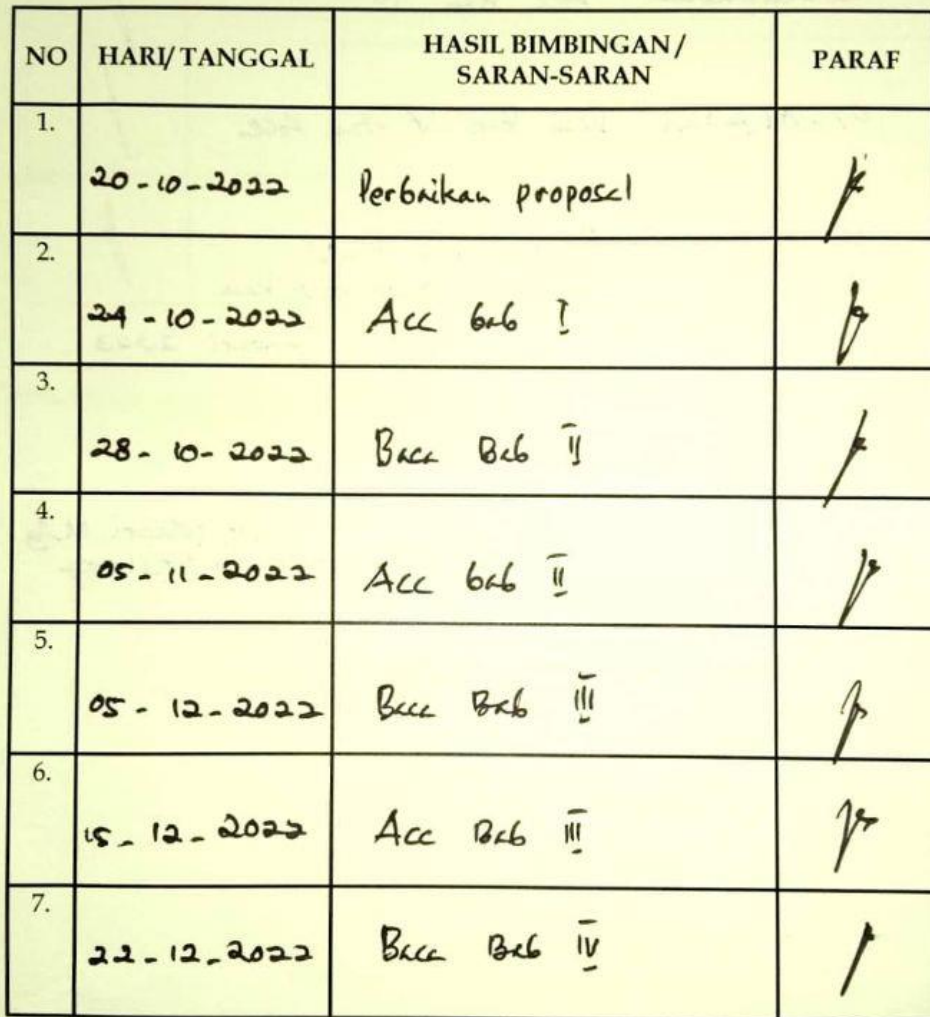 NO HARI/ TANGGAL HASIL BIMBINGAN / SARAN-SARAN PARAF
1.
20-10-2022 Perbaikan proposal
2.
24-10-2022 Acc bab I
3.
28-10-2022 Baca Bab II
4.
05-11-2022 Acc bab II
5.
05-12-2022 Baca Bab III
6.
15-12-2022 Acc Bab III
7.
22-12-2022 Baca Bab IV